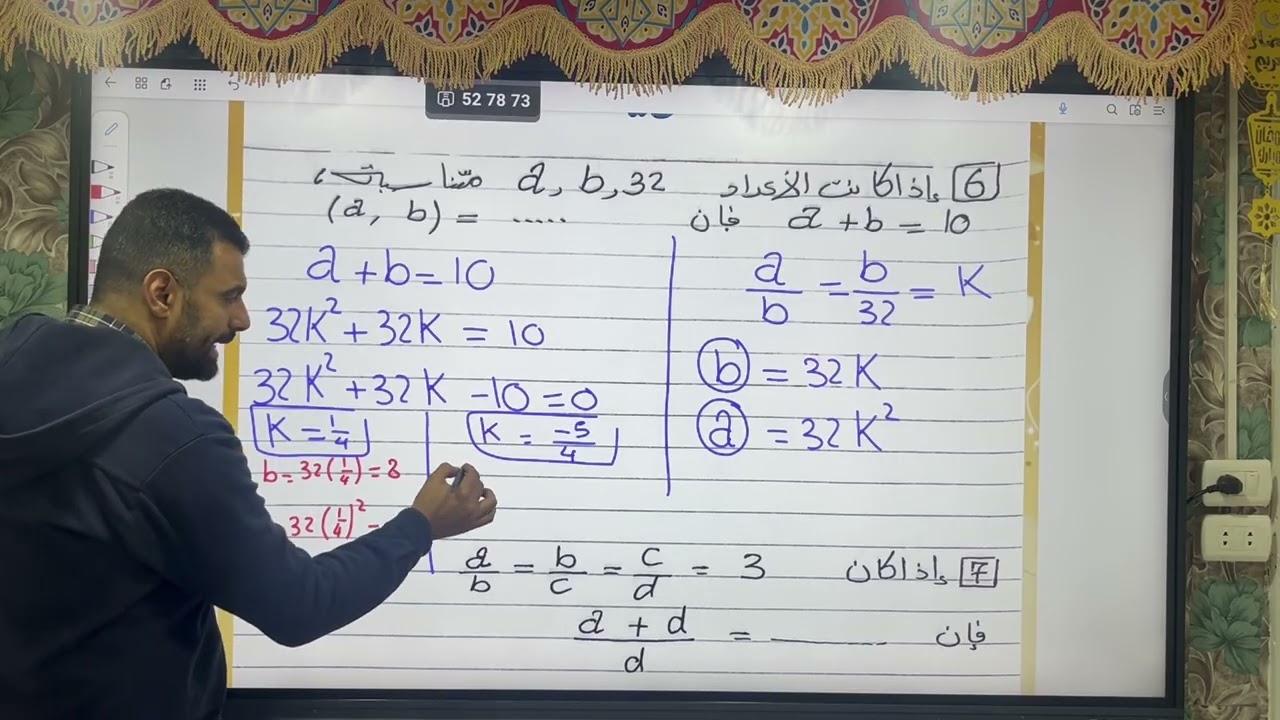 52 78 73
6 إذا كانت الأعداد a, b, 32 متناسبة،
a + b = 10 فإن (a, b) = .....
a/b = b/32 = K
b = 32K
a = 32K²
a + b = 10
32K² + 32K = 10
32K² + 32K - 10 = 0
K = 1/4
K = -5/4
b = 32(1/4) = 8
32(1/4)² =
7 إذا كان a/b = b/c = c/d = 3
فإن (a + d)/d = ______